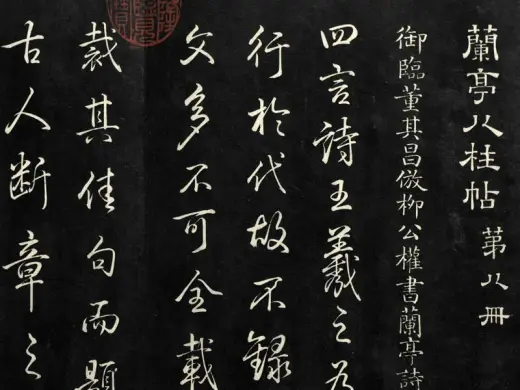 蘭亭八柱帖 第八冊
御臨董其昌倣柳公權書蘭亭詩
四言詩王羲之為
行於代故不錄
文多不可全載
裁其佳句而題
古人斷章之